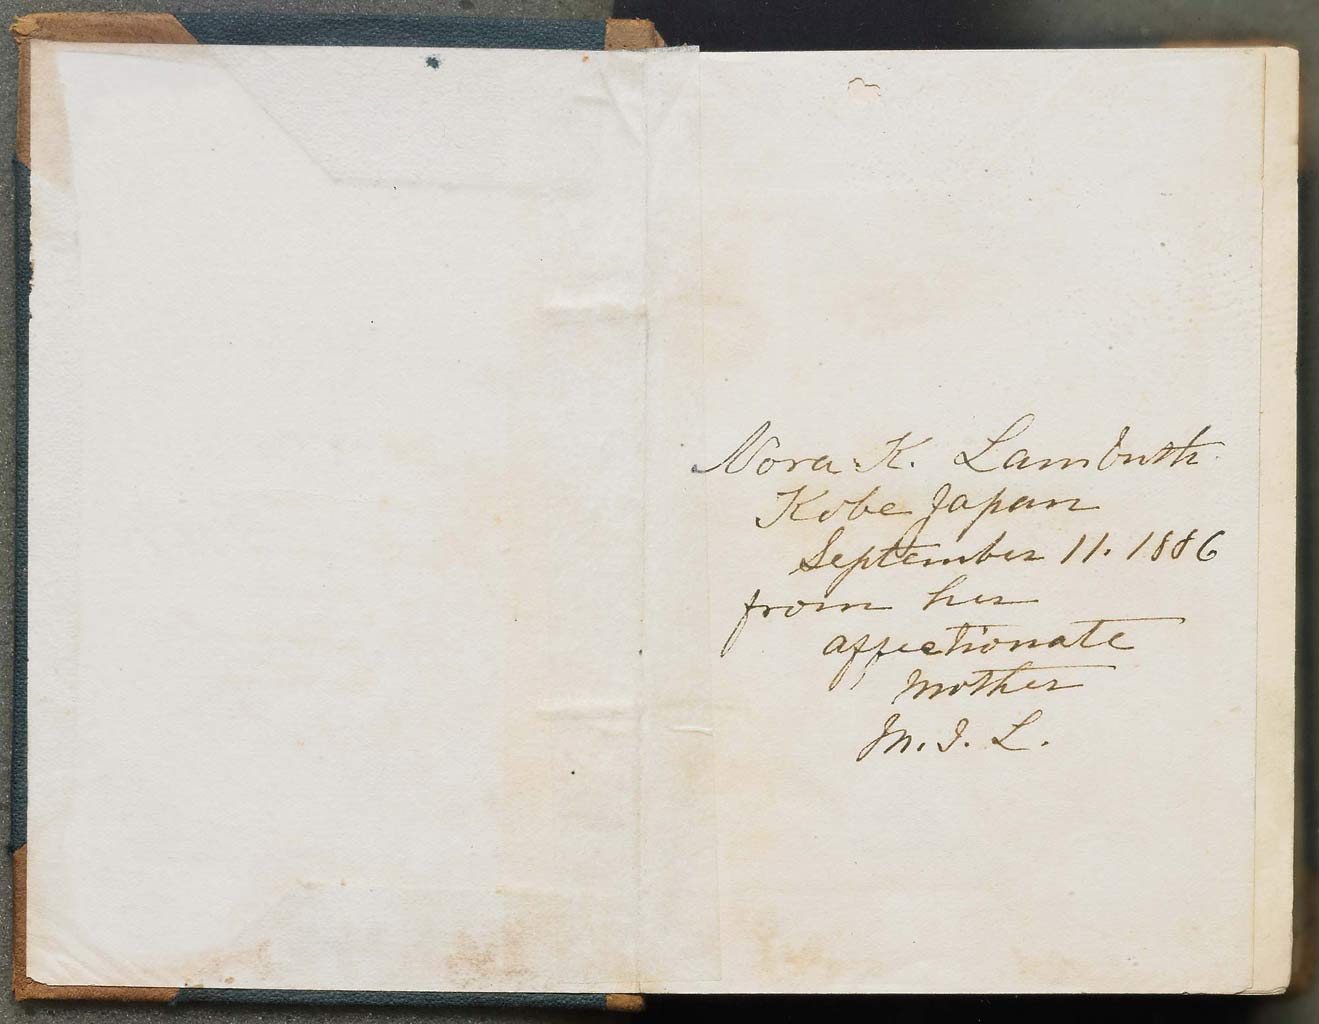 Nora K. Lambuth
Kobe Japan
September 11. 1886
from her
affectionate
mother
M. I. L.